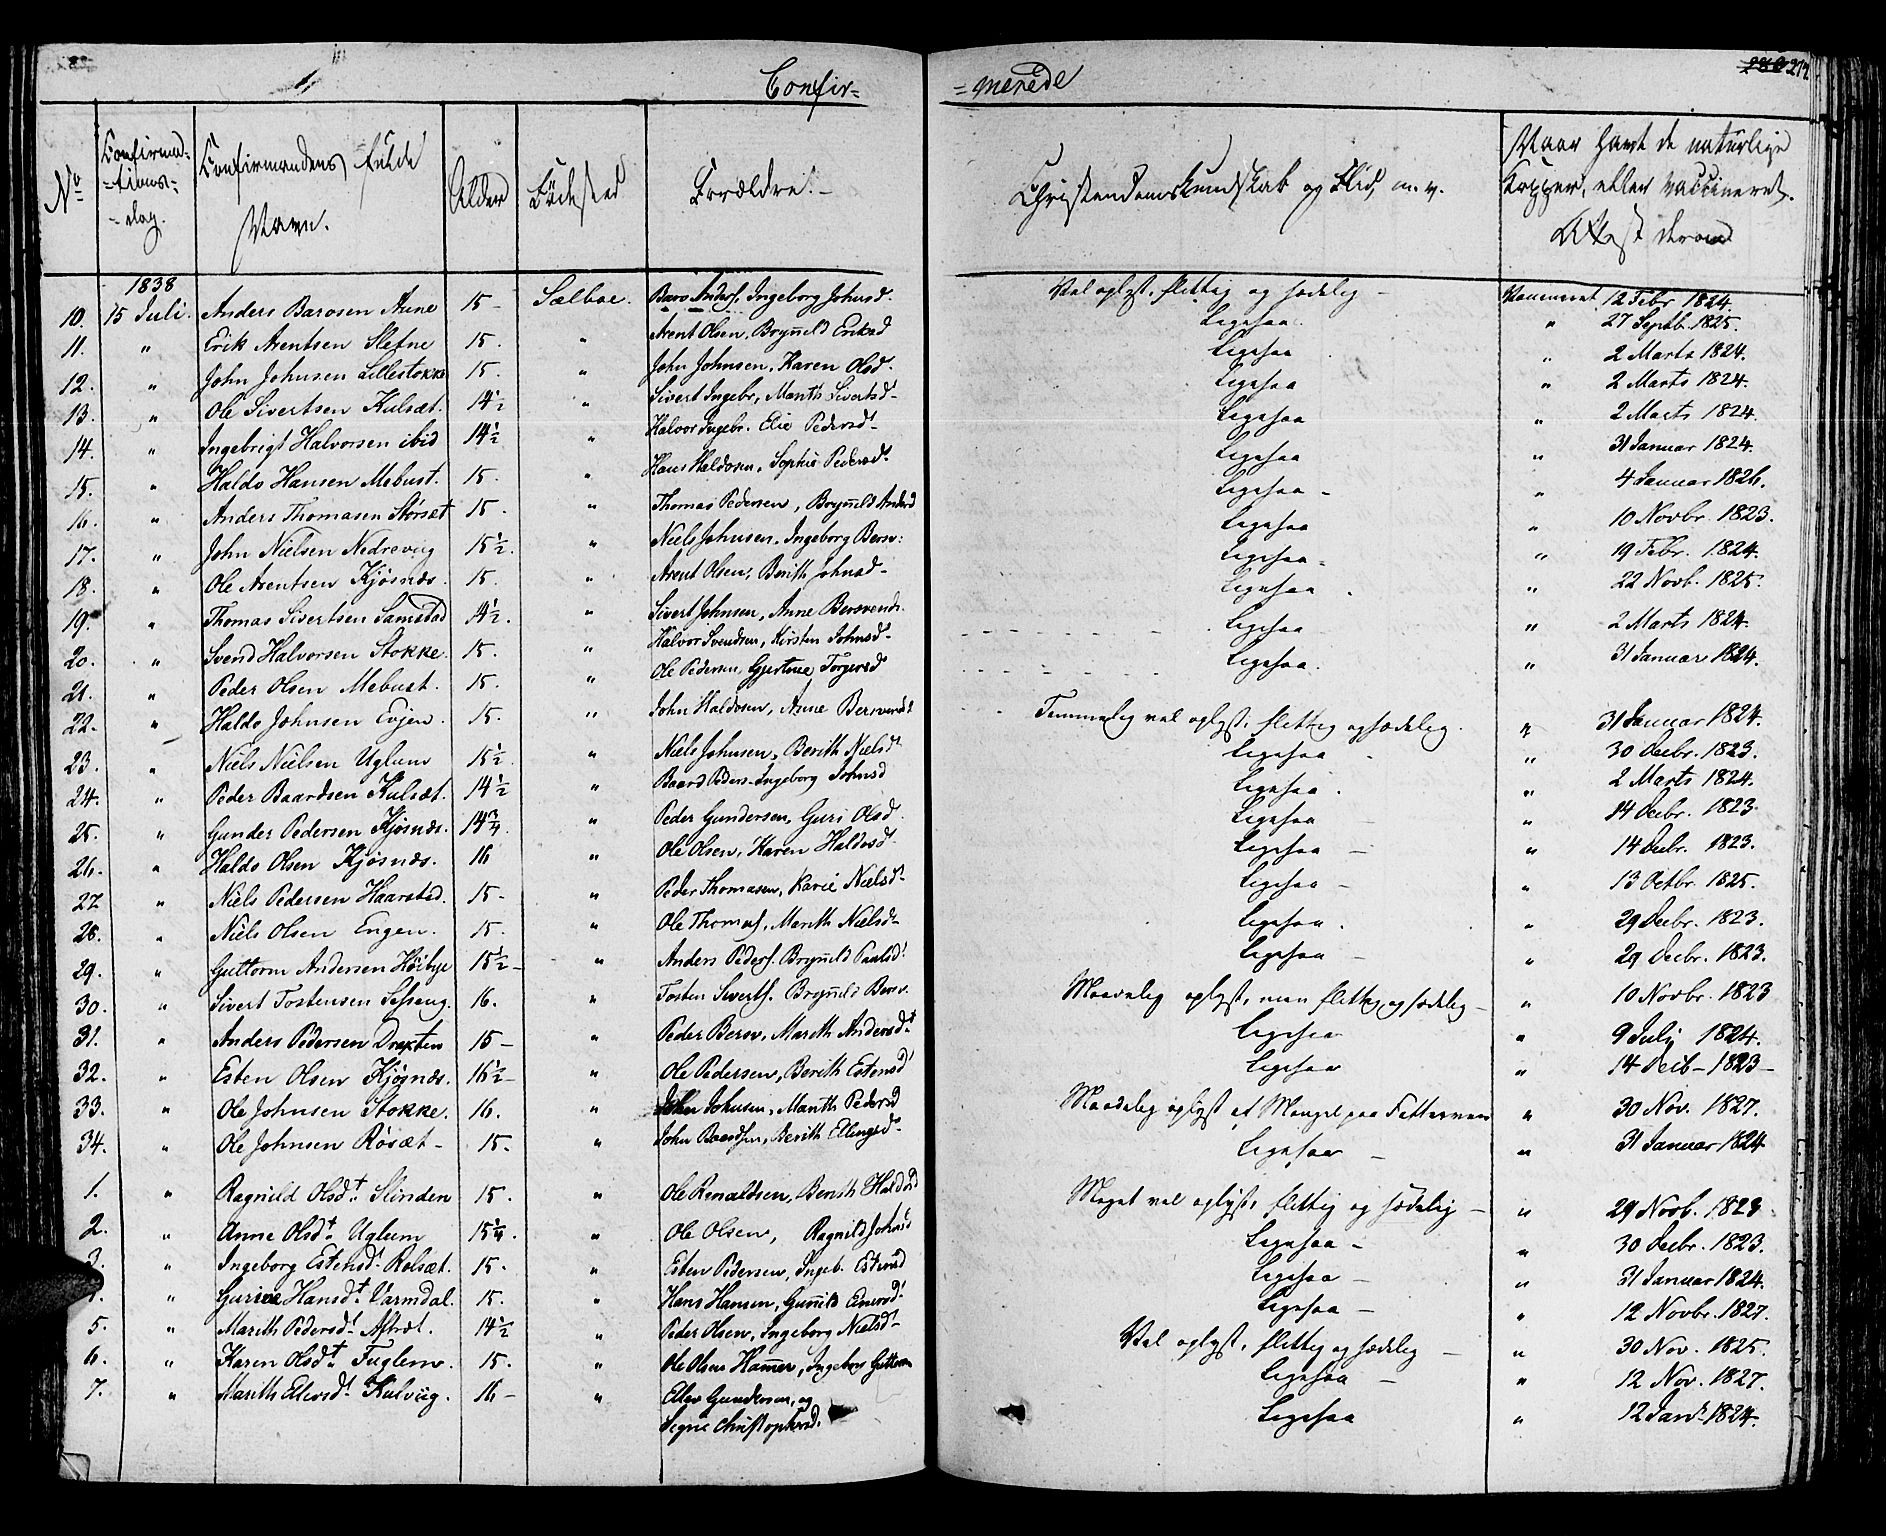 Confir=
=merede
274
No
Confirma=
=tions=
=dag.
Confirmandens fulde
Navn.
Alder
Födested
Forældre.
Christendomskundskab og Flid, m. v.
Naar havt de naturlige
Kopper, eller vaccineret.
Attest derom
1838
10. 15 Juli. Anders Barosen Aune 15 - Sælboe. Baro Anders. Ingeborg Johnsd. Vel oplyst, flittig og sædelig - Vaccineret 12 Febr 1824.
11. " Erik Arentsen Sletne 15. " Arent Olsen, Bryneld Eriksd Ligesaa. " 27 Septb. 1825.
12. " John Johnsen Lillestokke 15. " John Johnsen, Karen Olsd. Ligesaa " 2 Marts 1824.
13. " Ole Sivertsen Kulsæt. 14½ " Sivert Ingebr, Marith Sivertsd- Ligesaa " 2 Marts 1824.
14. " Ingebrigt Halvorsen ibid 14½ " Halvor Ingebr. Elie Pedersd- Ligesaa " 2 Marts 1824.
15. " Haldo Hansen Mebust. 15. " Hans Haldosen, Sophie Pedersd. Ligesaa " 31 Januar 1824.
16. " Anders Thomasen Storsæt 15. " Thomas Pedersen, Bryneld Andersd Ligesaa - " 4 Januar 1826.
17. " John Nielsen Nedrevug 15½. " Niels Johnsen. Ingeborg Bersv: Ligesaa " 10 Novbr. 1823.
18. " Ole Arentsen Kjösnæs. 15. " Arent Olsen, Berith Johnsd- Ligesaa - " 19 Febr. 1824.
19. " Thomas Sivertsen Samstad 14½. " Sivert Johnsen, Anne Bersvends. Ligesaa " 22 Novb. 1825.
20. " Svend Halvorsen Stokke. 15. " Halvor Svendsen, Kirsten Johnsd- Ligesaa " 2 Marts 1824.
21. " Peder Olsen Mebust. 15. " Ole Pedersen, Gjertrue Torgersd Ligesaa. " 31 Januar 1824.
22. " Haldo Johnsen Evjen. 15. " John Haldosen, Anne Bersvendsd Temmelig vel oplyst, flittig og sædelig. " 31 Januar 1824.
23. " Niels Nielsen Uglum 15½. " Niels Johnsen, Berith Nielsd- Ligesaa " 30 Decbr. 1823.
24. " Peder Baardsen Kulsæt. 14½ " Baard Peders- Ingeborg Johnsd Ligesaa. " 2 Marts 1824.
25. " Gunder Pedersen Kjösnæs. 14¾. " Peder Gundersen, Guri Olsd. Ligesaa " 14 Decbr. 1823.
26. " Haldo Olsen Kjösnæs. 16 " Ole Olsen, Karen Haldosd. Ligesaa - " 14 Decbr. 1823.
27 " Niels Pedersen Haarstad. 15- " Peder Thomasen, Karie Nielsd- Ligesaa - " 13 Octbr. 1825.
28. " Niels Olsen Engen. 15. " Ole Thomas. Marith Nielsd- Ligesaa. " 29 Decbr. 1823.
29. " Guttorm Andersen Höibye 15½- " Anders Peders. Bryneld Paulsd. Ligesaa - " 29 Decbr. 1823.
30. " Sivert Tostensen Sesseng. 16. " Tosten Siverts. Bryneld Bersv. Maadelig oplyst, men flittig og sædelig - " 10 Novbr. 1823
31. " Anders Pedersen Draxten 15- " Peder Bersv, Mareth Andersdt Ligesaa " 9 July 1824.
32. " Esten Olsen Kjösnæs. 16½- " Ole Pedersen, Berith Estensd Ligesaa " 14 Decb- 1823-
33. " Ole Johnsen Stokke. 16. " John Johnsen, Marith Pedersd Maadelig oplyst af Mangel paa Fatteevne " 30 Nov. 1827.
34. " Ole Johnsen Rösæt- 15. " John Baardsen, Berith Ellingsd- Ligesaa - " 31 Januar 1824
1. " Ragnild Olsdt Slinden 15. " Ole Renaldsen, Berith Haldosd Meget vel oplyst, flittig og sædelig - " 29 Novb. 1823
2. " Anne Olsdt Uglum 15¼. " Ole Olsen, Ragnild Johnsd Ligesaa - " 30 Decbr. 1823.
3. " Ingeborg Estensd. Rolsæt. 15. " Esten Pedersen, Ingeb. Estensd Ligesaa - " 31 Januar 1824.
" Gurine Hansdt. Varmdal. 15. " Hans Hansen, Gunild Einersd. Ligesaa - " 12 Novbr. 1827.
5. " Marith Pedersd. Aftræt. 14½ " Peder Olsen, Ingeborg Nielsd- Vel oplyst, flittig og sædelig - " 30 Nov. 1825.
6. " Karen Olsdt Fuglem. 15. " Ole Olsen Hammer, Ingeborg Guttorm Ligesaa - " 12 Nov. 1827.
7. " Marith Ellevsd. Kulvug. 16- " Ellev Gundersen, og
Segne Christophersd. Ligesaa " 12 Jan. 1824.